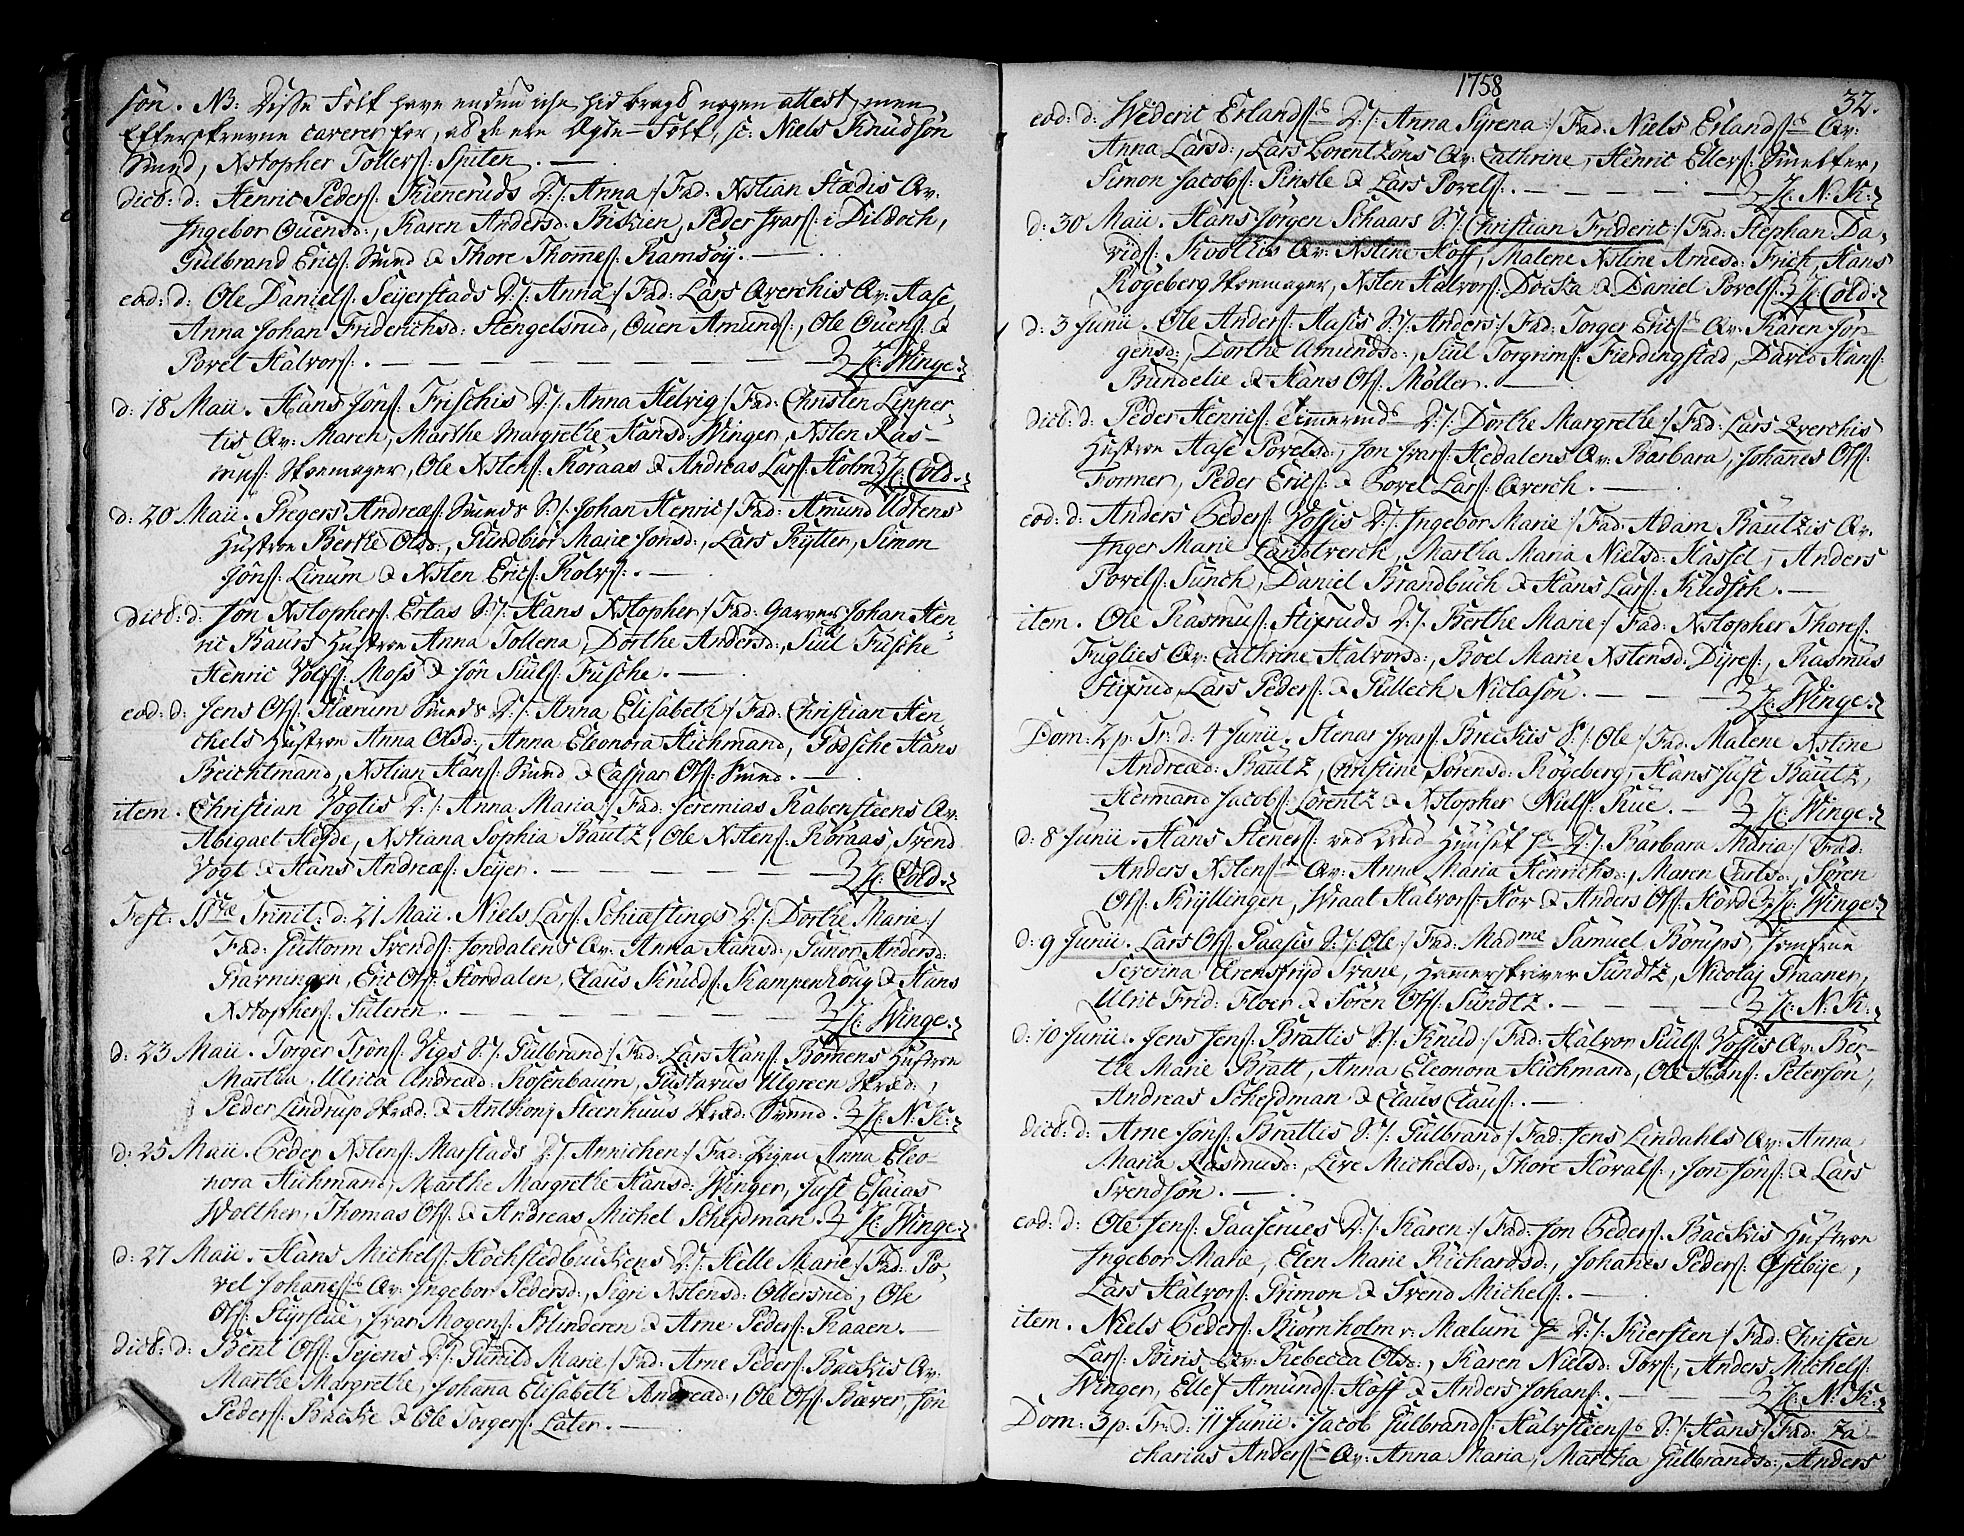 søn. NB: Disse Folk have endnu icke hid bragt nogen attest, men
Efterskrevne caverer for, at de ere Ægte-Folk, sc: Niels Knudsøn
Smed, Xstopher Tollers: Spiten. —
dict: d: Henric Peders: Kuneruds D:/: Anna :/ Fad: Xstian Stædis Qv:
Ingebor Ouensd:, Karen Andersd: Briskien, Peder Ivars: i Dildoch,
Gulbrand Erics: Smed & Thore Thomes: Ramsøy. —
eod: d: Ole Daniels: Seyerstads D:/: Anna :/ Fad: Lars Qverchis Qv: Aase,
Anna Johan Friderichsd: Stengelsrud, Ouen Amunds:, Ole Ouens: &
Povel Halvors: — — — — — H: Winge.
d: 18 Maii. Hans Jons: Frischis D:/: Anna Helvig :/ Fad: Christen Lipper-
tis Qv: Maren, Marthe Margrethe Hansd: Winger, Xsten Ras-
mus: Skoemager, Ole Xstens: Roraas & Andreas Lars: Holm H: Cold.
d: 20 Maii. Regers Andreæs: Smeds S:/: Johan Henric :/ Fad: Amund Udtens
Hustroe Berthe Olsd:, Gundbior Marie Jonsd:, Lars Rytter, Simon
Jons: Linum & Xsten Erics: Kolvs:. —
dict: d: Jon Xstophers: Ertas S:/: Hans Xstopher :/ Fad: Garver Johan Hen-
ric Baurs Hustroe Anna Tollena, Dorthe Andersd:, Siul Fusche
Henric Volfs: Moss & Jon Siuls: Fusche. —
eod: d: Jens Ols: Hærum Smeds D:/: Anna Elisabeth :/ Fad: Christian Hen-
chels Hustroe Anna Olsd:, Anna Eleonora Hichmand, Födsche Hans
Beichtmand, Xstian Hans: Smed & Caspar Ols: Smed. —
item. Christian Vogtis D:/: Anna Maria :/ Fad: Jeremias Rabensteens Qv:
Abigael Heyde, Xstiana Sophia Bautz, Ole Xstens: Roraas, Svend
Vogt & Hans Andreæs: Seyer. — — — — H: Cold.
Fest: SSæ Trinit: d: 21 Maii. Niels Lars: Schiæftings D:/: Dorthe Marie :/
Fad: Guttorm Svends: Jondalens Qv: Anna Hansd:, Gunor Andersd:
Grarningen, Eric Ols: Stordalen, Claus Knuds: Kampenhoug & Hans
Xstophers: Suteren. — — — — H: Winge.
d: 23 Maii. Torger Trons: Vigs S:/: Gulbrand :/ Fad: Lars Hans: Bömens Hustroe
Martha Ulrica Andreæd: Rosenbaum, Gustavus Ulgreen Skræd:,
Peder Lindrup Skræd: & Anthonj Steenhuus Skræd: Svend. H: N: K:
d: 25 Maii. Peder Xstens: Marstads D:/: Annichen :/ Fad: Pigen Anna Eleo-
nora Hichmand, Marthe Margrethe Hansd: Winger, Just Esaias
Wolther, Thomas Ols: & Andreas Michel Scheidman. H: Winge.
d: 27 Maii. Hans Michels: Hochsledbackens D:/: Helle Marie :/ Fad: Po-
vel Johanes: Qv: Ingebor Pedersd:, Sigri Xstensd: Ollersrud, Ole
Ols: Styrstue, Ivar Mogens: Blinderen & Arne Peders: Raaen. —
dict: d: Bent Ols: Tejens D:/: Gunild Marie :/ Fad: Arne Peders: Backis Qv:
Marthe Margrethe, Johanna Elisabeth Andreæd:, Ole Ols: Bæver, Jon
Peders: Backe & Ole Torgers: Later. —
1758
32.
eod: d: Wederic Erlands: D:/: Anna Syrena :/ Fad: Niels Erlands: Qv:
Anna Larsd:, Lars Lorentzöns Qv: Cathrine, Henric Ellers: Smelter,
Simon Jacobs: Pinsle & Lars Povels:. — — — — H: N: K:
d: 30 Maii. Hans Jörgen Schaars S:/: Christian Frideric :/ Fad: Stephan Da-
vids: Kvollis Qv: Xstine Hoff, Malene Xstine Arnesd: Frich, Hans
Rögeberg Skoemager, Xsten Halvors: Docka & Daniel Povels: H: Cold.
d: 3 Junii. Ole Anders: Aasis S:/: Anders :/ Fad: Torger Erics: Qv: Karen Jör-
gensd:, Dorthe Amundsd:, Siul Torgrims: Fierdingstad, David Hans:
Bundelie & Hans Ols: Möller. —
dict: d: Peder Henrics: Temmeruds D:/: Dorthe Margrethe :/ Fad: Lars Qverchis
Hustroe Aase Povelsd:, Jon Ivars: Hedalens Qv: Barbara, Johannes Ols:
Former, Peder Erics: & Povel Lars: Qverch. —
eod: d: Anders Peders: Vossis D:/: Ingebor Marie :/ Fad: Adam Bautzis Qv:
Inger Marie Landtverch, Martha Maria Nielsd: Hassel, Anders
Povels: Sunch, Daniel Brandbuch & Hans Lars: Kudsch. —
item. Ole Rasmus: Stifruds D:/: Berthe Marie :/ Fad: Xstopher Thores:
Fuglies Qv: Cathrine Halvorsd:, Boel Marie Xstensd: Dyres:, Rasmus
Stifrud, Lars Peders: & Gullech Niclasön. — — — H: Winge.
Dom: 2 p. Tr. d: 4 Junii. Stenar Ivars: Breckis S:/: Ole :/ Fad: Malene Xstine
Andreæd: Bautz, Christine Sörensd: Rögeberg, Hans Just Bautz,
Hermand Jacobs: Lorentz & Xstopher Niels: Rue. — H: Winge.
d: 8 Junii. Hans Steners: ved Lud-Huuset D:/: Barbara Maria :/ Fad:
Anders Xstens: Qv: Anna Maria Henrichsd:, Maren Carlsd:, Sören
Ols: Kryllingen, Wraal Halvors: Kor & Anders Ols: Horde H: Winge.
d: 9 Junii. Lars Ols: Gaasis S:/: Ole :/ Fad: Madme Samuel Borups, Jomfrue
Severina Arensfryd Svane, Hammerskriver Sundtz, Nicolaj Graaner,
Ulric Frid: Floer & Sören Ols: Sundtz. — — — H: N: K:
d: 10 Junii. Jens Jens: Brattis S:/: Knud :/ Fad: Halvor Siuls: Vossis Qv: Ber-
the Marie Bratt, Anna Eleonora Hichmand, Ole Hans: Petersön,
Andreas Scheidman & Claus Claus:. —
dict: d: Arne Jons: Brattis S:/: Gulbrand :/ Fad: Jens Lindahls Qv: Anna
Maria Rasmusd:, Live Michelsd:, Thore Hovals:, Jon Jons: & Lars
Svendsön. —
eod: d: Ole Jens: Gaaserues D:/: Karen :/ Fad: Jon Peders: Backis Hustroe
Ingebor Marie, Elen Marie Richardsd:, Johanes Peders: Östbye,
Lars Halvors: Grimon & Svend Michels:. —
item. Niels Peders: Björnholm v: Mælum D:/: Kiersten :/ Fad: Christen
Lars: Biris Qv: Rebecca Olsd:, Karen Nielsd: Tors:, Anders Michels:
Winger, Ellef Amunds: Hoff & Anders Johans:. — — H: N: K:
Dom: 3 p. Tr: d: 11 Junii. Jacob Gulbrands: Halvsteens: S:/: Hans :/ Fad: Za-
charias Anders: Qv: Anna Maria, Martha Gulbrandsd:, Anders